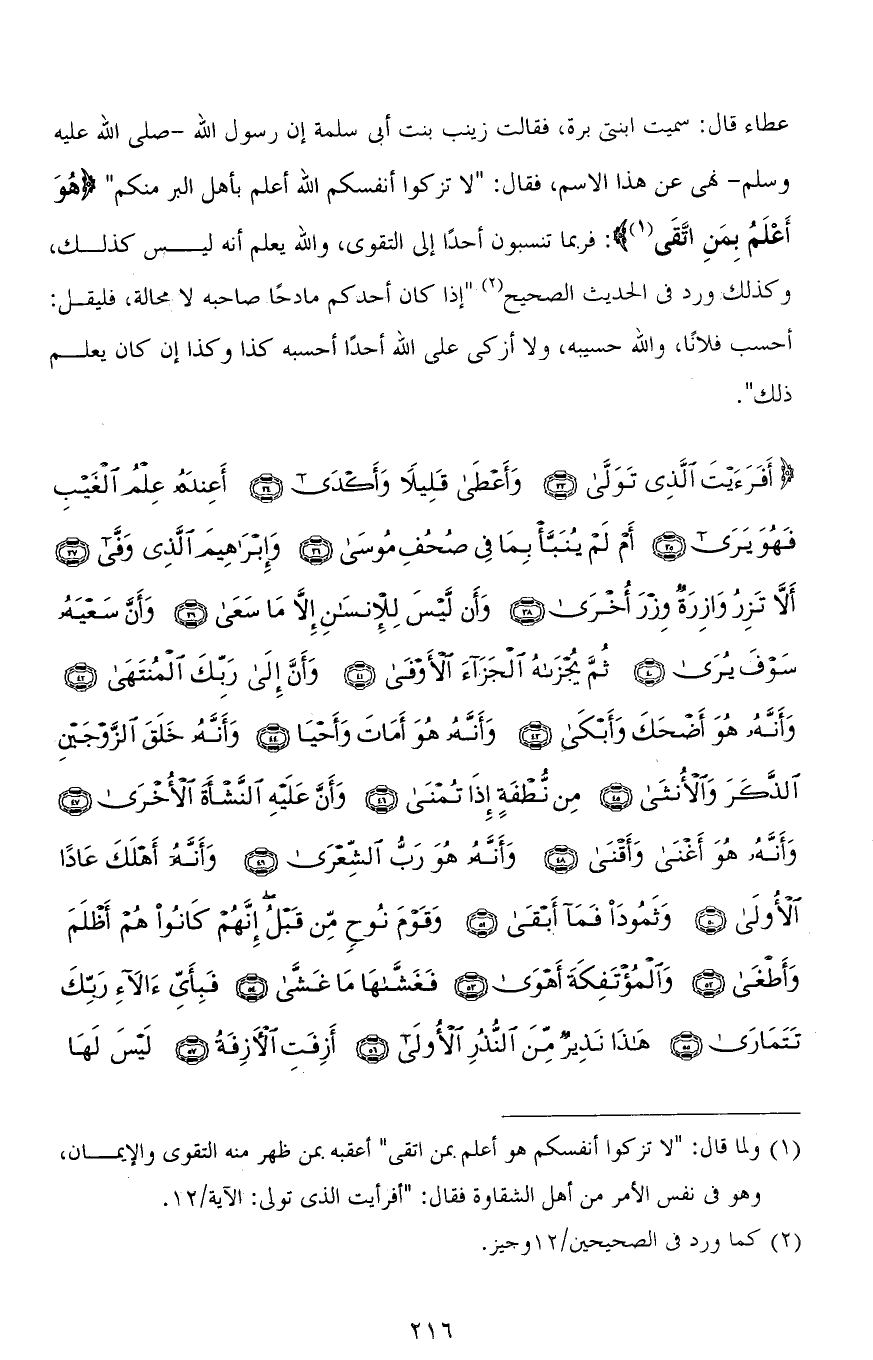 عطاء قال: سميت ابنتى برة، فقالت زينب بنت أبى سلمة إن رسول الله -صلى الله عليه
وسلم- نهى عن هذا الاسم، فقال: "لا تزكوا أنفسكم الله أعلم بأهل البر منكم" ﴿هُوَ
أَعْلَمُ بِمَنِ اتَّقَى(١)﴾: فربما تنسبون أحدًا إلى التقوى، والله يعلم أنه ليس كذلك،
وكذلك ورد فى الحديث الصحيح(٢) "إذا كان أحدكم مادحًا صاحبه لا محالة، فليقل:
أحسب فلانًا، والله حسيبه، ولا أزكى على الله أحدًا أحسبه كذا وكذا إن كان يعلم
ذلك".
﴿أَفَرَءَيْتَ ٱلَّذِى تَوَلَّىٰ ٣٣ وَأَعْطَىٰ قَلِيلًا وَأَكْدَىٰٓ ٣٤ أَعِندَهُۥ عِلْمُ ٱلْغَيْبِ
فَهُوَ يَرَىٰٓ ٣٥ أَمْ لَمْ يُنَبَّأْ بِمَا فِى صُحُفِ مُوسَىٰ ٣٦ وَإِبْرَٰهِيمَ ٱلَّذِى وَفَّىٰٓ ٣٧
أَلَّا تَزِرُ وَازِرَةٌ وِزْرَ أُخْرَىٰ ٣٨ وَأَن لَّيْسَ لِلْإِنسَٰنِ إِلَّا مَا سَعَىٰ ٣٩ وَأَنَّ سَعْيَهُۥ
سَوْفَ يُرَىٰ ٤٠ ثُمَّ يُجْزَىٰهُ ٱلْجَزَآءَ ٱلْأَوْفَىٰ ٤١ وَأَنَّ إِلَىٰ رَبِّكَ ٱلْمُنتَهَىٰ ٤٢
وَأَنَّهُۥ هُوَ أَضْحَكَ وَأَبْكَىٰ ٤٣ وَأَنَّهُۥ هُوَ أَمَاتَ وَأَحْيَا ٤٤ وَأَنَّهُۥ خَلَقَ ٱلزَّوْجَيْنِ
ٱلذَّكَرَ وَٱلْأُنثَىٰ ٤٥ مِن نُّطْفَةٍ إِذَا تُمْنَىٰ ٤٦ وَأَنَّ عَلَيْهِ ٱلنَّشْأَةَ ٱلْأُخْرَىٰ ٤٧
وَأَنَّهُۥ هُوَ أَغْنَىٰ وَأَقْنَىٰ ٤٨ وَأَنَّهُۥ هُوَ رَبُّ ٱلشِّعْرَىٰ ٤٩ وَأَنَّهُۥٓ أَهْلَكَ عَادًا
ٱلْأُولَىٰ ٥٠ وَثَمُودَا۟ فَمَآ أَبْقَىٰ ٥١ وَقَوْمَ نُوحٍ مِّن قَبْلُ ۖ إِنَّهُمْ كَانُوا۟ هُمْ أَظْلَمَ
وَأَطْغَىٰ ٥٢ وَٱلْمُؤْتَفِكَةَ أَهْوَىٰ ٥٣ فَغَشَّىٰهَا مَا غَشَّىٰ ٥٤ فَبِأَىِّ ءَالَآءِ رَبِّكَ
تَتَمَارَىٰ ٥٥ هَٰذَا نَذِيرٌ مِّنَ ٱلنُّذُرِ ٱلْأُولَىٰٓ ٥٦ أَزِفَتِ ٱلْءَازِفَةُ ٥٧ لَيْسَ لَهَا
(١) ولما قال: "لا تزكوا أنفسكم هو أعلم بمن اتقى" أعقبه بمن ظهر منه التقوى والإيمان،
وهو فى نفس الأمر من أهل الشقاوة فقال: "أفرأيت الذى تولى: الآية/١٢.
(٢) كما ورد فى الصحيحين/١٢وجيز.
٢١٦